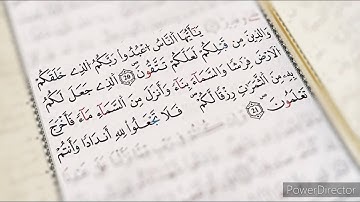 يَٰٓأَيُّهَا اَ۬لنَّاسُ اُ۟عْبُدُواْ رَبَّكُمُ اُ۬لذِے خَلَقَكُمْ
وَالذِينَ مِن قَبْلِكُمْ لَعَلَّكُمْ تَتَّقُونَ 20 اَ۬لذِے جَعَلَ لَكُمُ
اُ۬لَارْضَ فِرَٰشاً وَالسَّمَآءَ بِنَآءً وَأَنزَلَ مِنَ اَ۬لسَّمَآءِ مَآءً فَأَخْرَجَ
بِهِۦ مِنَ اَ۬لثَّمَرَٰتِ رِزْقاً لَّكُمْ فَلَا تَجْعَلُواْ لِلهِ أَندَاداً وَأَنتُمْ
تَعْلَمُونَ 21
PowerDirector